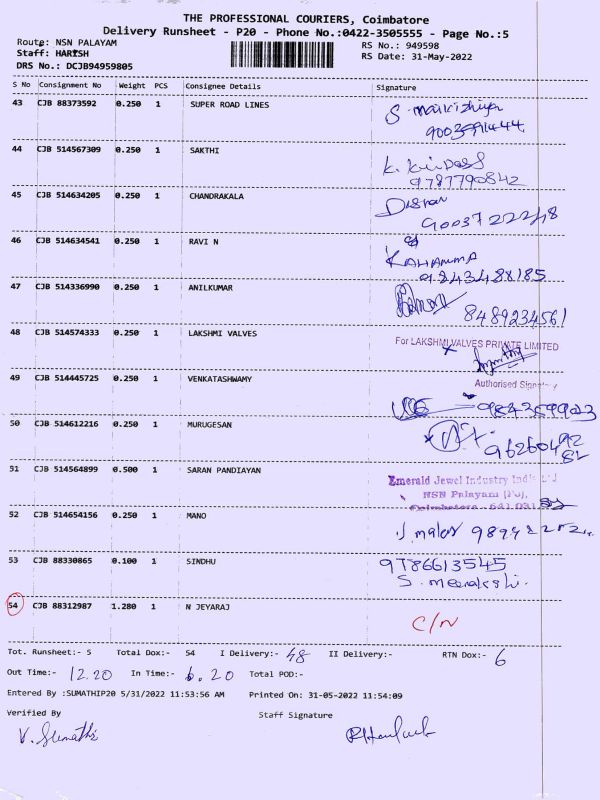 THE PROFESSIONAL COURIERS, Coimbatore
Delivery Runsheet - P20 - Phone No.:0422-3505555 - Page No.:5
Route: NSN PALAYAM
RS No.: 949598
Staff: HARISH
RS Date: 31-May-2022
DRS No.: DCJB94959805
S No Consignment No Weight PCS Consignee Details Signature
43 CJB 88373592 0.250 1 SUPER ROAD LINES
9003991444
44 CJB 514567309 0.250 1 SAKTHI
9787790842
45 CJB 514634205 0.250 1 CHANDRAKALA
9003722248
46 CJB 514634541 0.250 1 RAVI N
9843488185
47 CJB 514336990 0.250 1 ANILKUMAR
8489234561
48 CJB 514574333 0.250 1 LAKSHMI VALVES
For LAKSHMI VALVES PRIVATE LIMITED
Authorised Signatory
49 CJB 514445725 0.250 1 VENKATASHWAMY
50 CJB 514612216 0.250 1 MURUGESAN
96260492
82
51 CJB 514564899 0.500 1 SARAN PANDIAYAN
Emerald Jewel Industry India Ltd
NSN Palayam (PO),
Coimbatore - 641 031
52 CJB 514654156 0.250 1 MANO
53 CJB 88330865 0.100 1 SINDHU
9786613545
S. meenakshi.
54 CJB 88312987 1.280 1 N JEYARAJ
C/N
Tot. Runsheet:- 5 Total Dox:- 54 I Delivery:- 48 II Delivery:- RTN Dox:- 6
Out Time:- 12.20 In Time:- 6.20 Total POD:-
Entered By :SUMATHIP20 5/31/2022 11:53:56 AM Printed On: 31-05-2022 11:54:09
Verified By Staff Signature
V. Sumathi